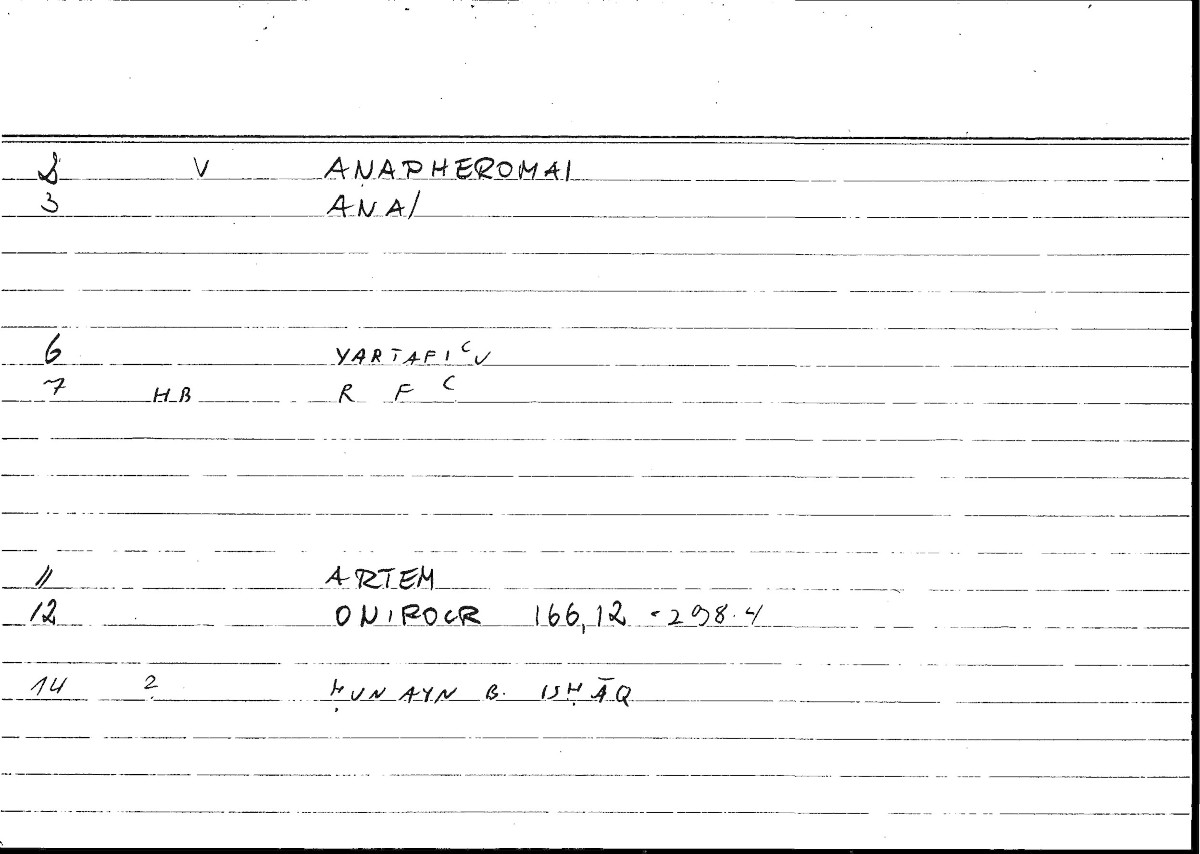 2 V ANAPHEROMAI
3 ANA/
6 YARTAFIᶜU
7 HB R F ᶜ
11 ARTEM
12 ONIROCR 166,12 - 298.4
14 2 ḤUNAYN B. ISḤĀQ